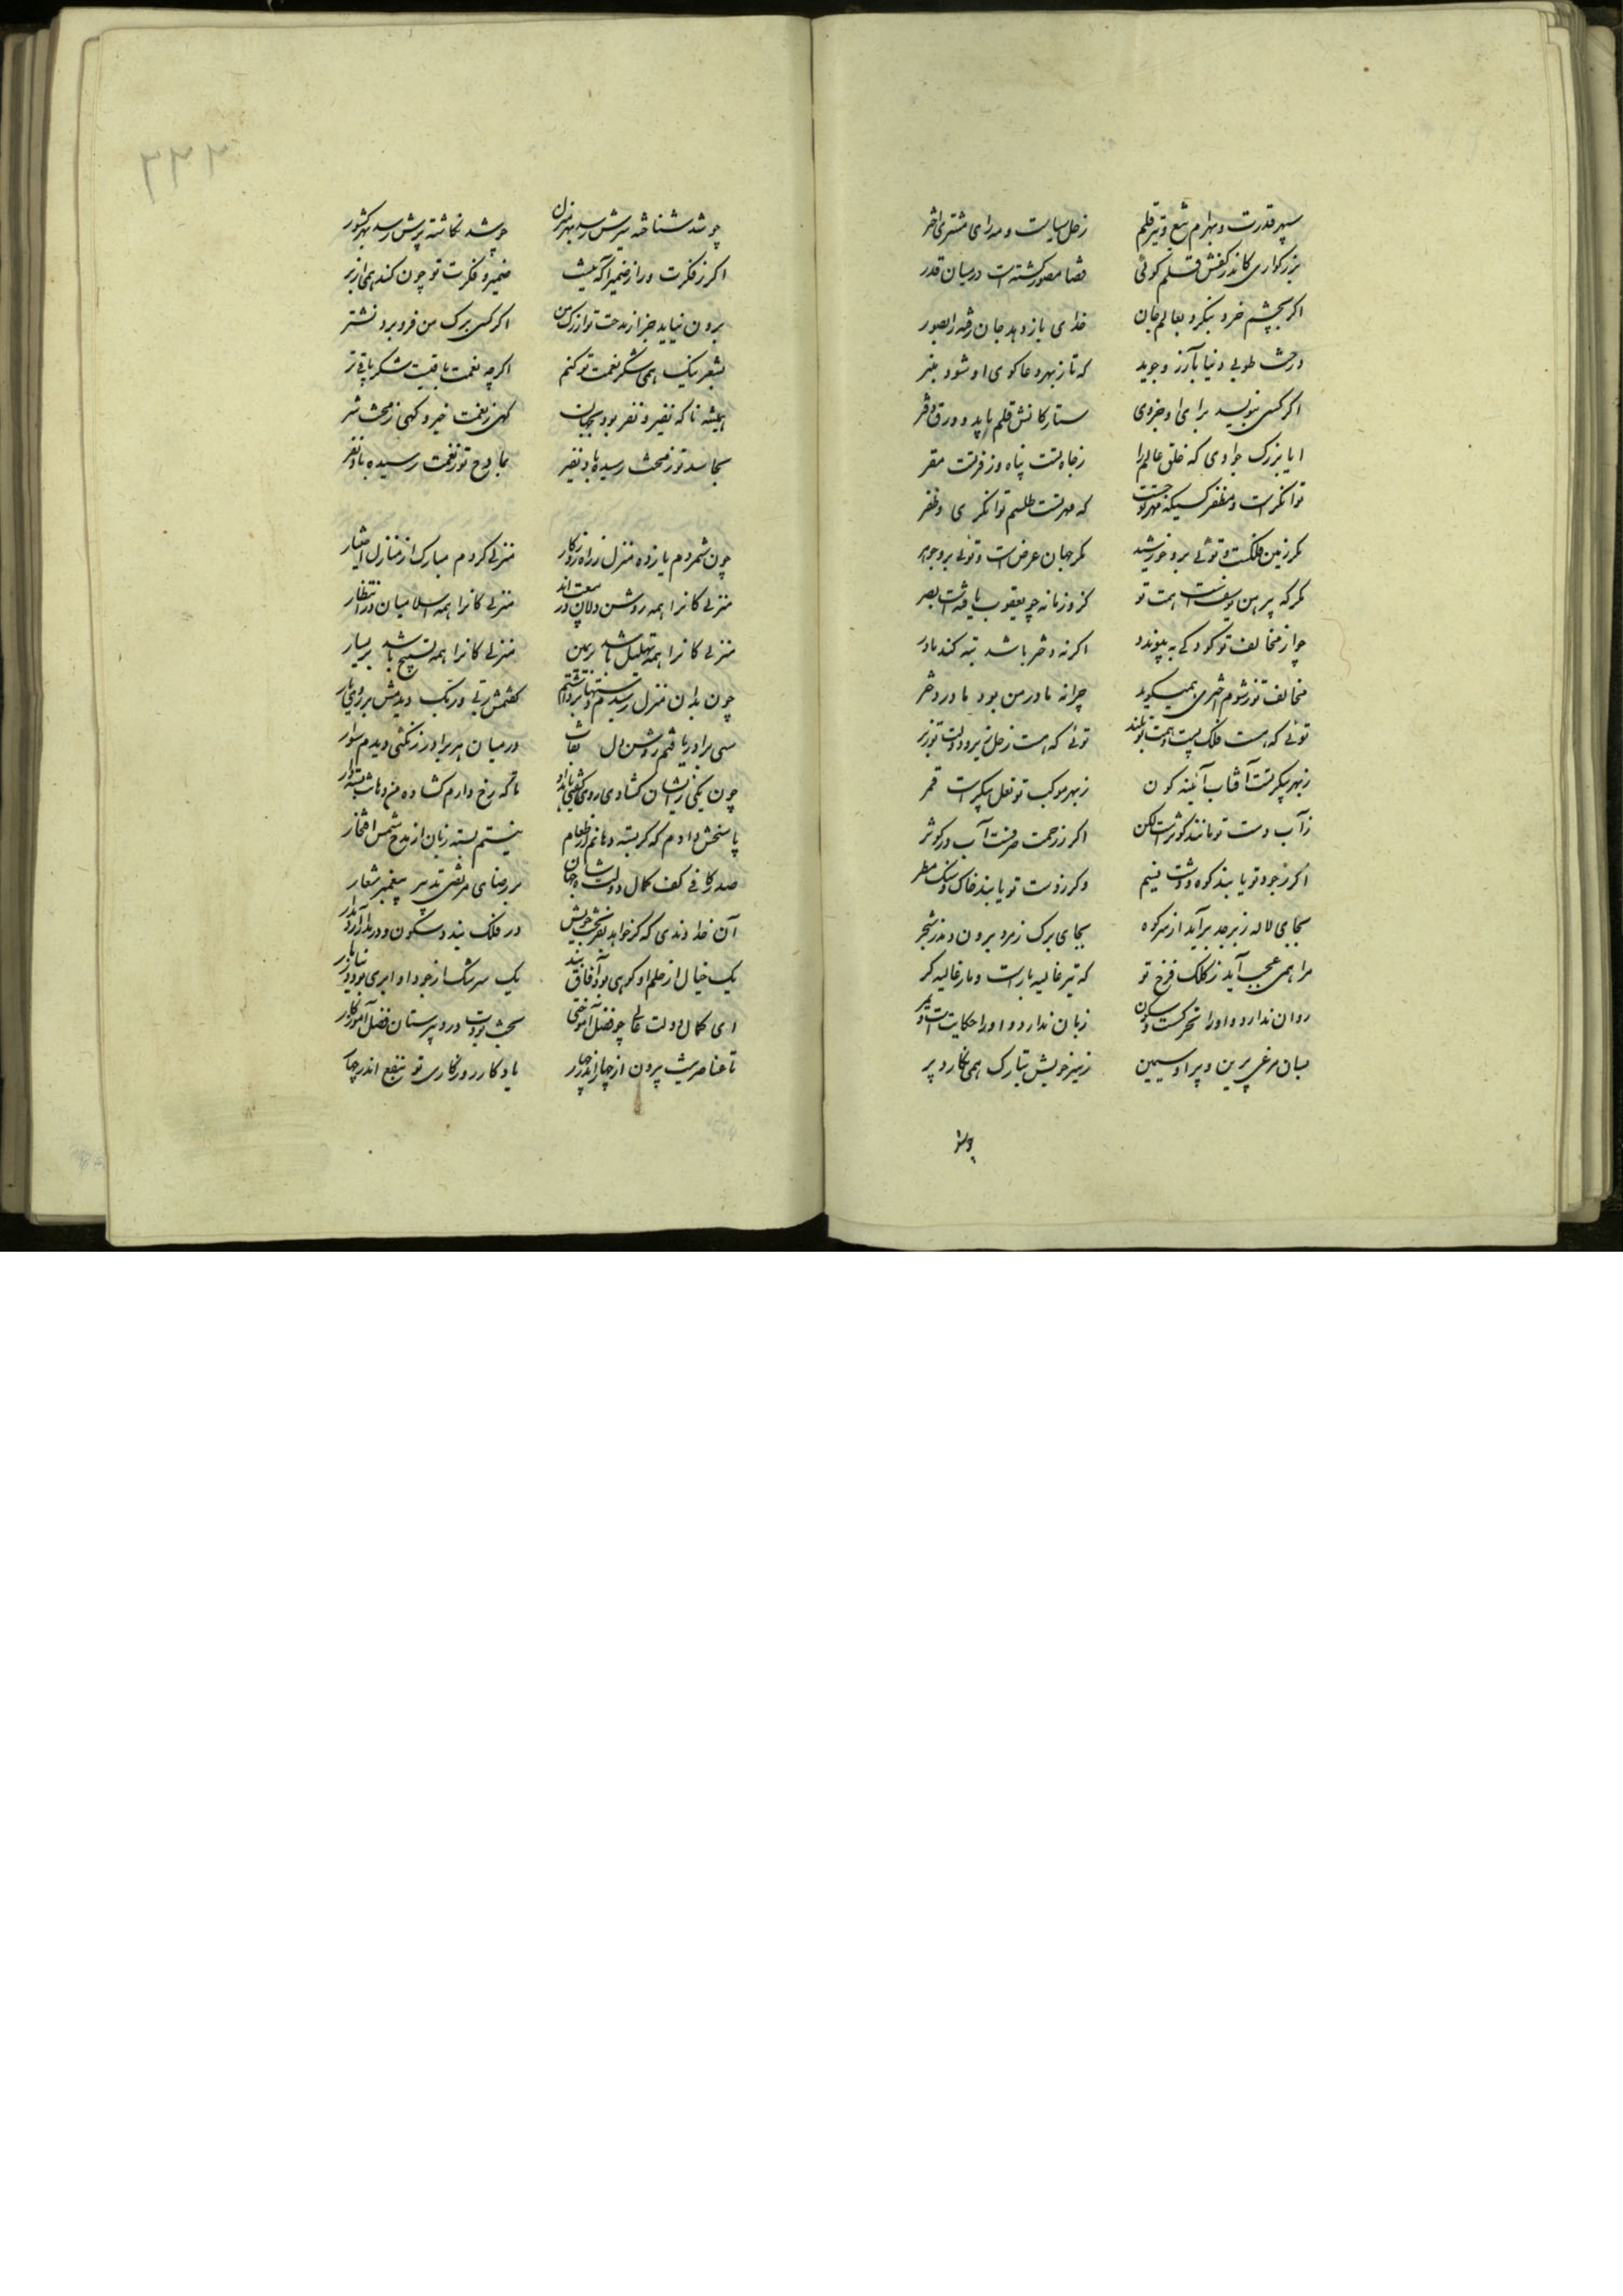 سپهر قدرت و بهرام تیغ و تیر قلم زحل سیاست و مه رای مشتری اختر
بزرکواری کاندر کفش قلم کوئی قضا مصور کشتست در میان قدر
اکر بچشم خرد بنکرد بعالم جان خدای باز دهد جان رفته را بصور
درخت طوبی دنیا بآرزو جوید که تا ز بهر دعا کوی او شود منبر
اکر کسی بنویسد برای او جزوی ستارکانش قلم باید و ورق دفتر
ایا بزرک جوادی که خلق عالم را ز جاه تست پناه و ز فر تست مقر
توانکرست و مظفر کسیکه مهر تو جست که مهر تست طلسم توانکری و ظفر
مکر زمین فلکست و توئی برو خورشید مکر جهان عرض است و توئی برو جوهر
مکر که پیرهن یوسفست همت تو کزو زمانه چو یعقوب یافته است بصر
چو از مخالف تو کودکی به پیوندد اکر نه دختر باشد تبه کند مادر
مخالف تو ز شوم اختری همیکوید چرا نه مادر من بود مادر دختر
توئی که هست فلک پست و همت تو بلند توئی که هست زحل زیر و دولت تو زبر
ز بهر پیکر تست آفتاب آینه کون ز بهر موکب تو نعل پیکرست قمر
ز آب دست تو مانند کوثرست لکن اکر ز رحمت صرفست آب در کوثر
اکر ز جود تو یابند کوه و دشت نسیم وکر ز دست تو یابند خاک و سنک مطر
بجای لاله زبرجد برآید از سر کوه بجای برک زمرد برون دمد ز شجر
مرا همی عجب آید ز کلک فرخ تو که تیر غالیه بارست و مار غالیه کر
روان ندارد و او را تحرکست و سکون زبان ندارد و او را حکایت است و سمر
بسان مرغی پرین و پر او سیمین ز قیر خویش بتارک همی نکارد پر
چو شد
چو شد شناخته سیرش رسد بهر منزل چو شد نکاشته پرش رسد بهر کشور
اکر ز فکرت و راز ضمیر آکه نیست ضمیر و فکرت تو چون کند همی از بر
برون نیاید جز از مدحت تو از رک من اکر کسی برک من فرو برد نشتر
بشعر نیک همی شکر نعمت تو کنم اکرچه نعمت باقیست شکر باقی تر
همیشه تا که نفیر و نفر بود بجهان کهی ز نعمت خیر و کهی ز محنت شر
بحاسد تو ز محنت رسیده باد نفیر بمادح تو ز نعمت رسیده باد نفر
چون شمردم یازده منزل ز راه روزکار منزلی کردم مبارک از منازل اختیار
منزلی کانرا همه روشن دلان در منزلی کانرا همه اسلامیان در انتظار
منزلی کانرا همه تهلیل باشد بر یمین منزلی کانرا همه تسبیح باشد بر یسار
چون بدان منزل رسیدم
سی برادر یافتم روشن دل در میان هر برادر زنکئی دیدم سوار
چون یکی زیشان کشادی روی تا که رخ دارم کشاده من دهان بسته دار
پاسخش دادم که کر بسته دهانم از طعام نیستم بسته زبان از مدح شمس افتخار
صدر کافی کف کمال دولت شاه جهان بر رضای مرتضی تدبیر پیغمبر شعار
آن خداوندی که کر خواهد
یک خیال از حلم او کوهی بود آفاق بند یک سرشک از جود او ابری بود
ای کمال دولت عالی چو فضل آموختی بخت بودت در دبیرستان فضل آموزکار
تا عناصر نیست بیرون از چهار اندر جهان یادکار روزکاری تو